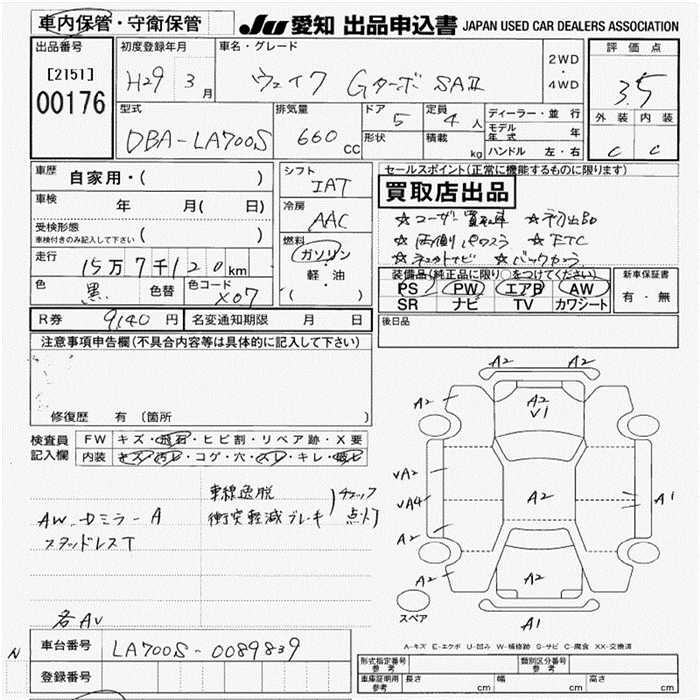 車内保管・守衛保管 JU 愛知 出品申込書 JAPAN USED CAR DEALERS ASSOCIATION
出品番号 初度登録年月 車名・グレード 評価点
[2151] H29 3月 ウェイク GターボSAⅡ 2WD・4WD 3.5
00176
型式 排気量 ドア 定員 ディーラー・並行 外装 内装
DBA-LA700S 660cc 5 4人 モデル年式 年 C C
形状 積載 kg ハンドル 左・右
車歴 自家用・( ) シフト IAT セールスポイント(正常に機能するものに限ります)
買取店出品
車検 年 月( 日) 冷房 AAC
☆ユーザー買取車
受検形態
車検付きのみ記入して下さい
燃料 ガソリン・軽・油 ( )
☆両側パワスラ ☆ETC
☆バックカメラ
走行 15万7千120km
装備品(純正品に限り○をつけてください) 新車保証書
色 黒 色替 色コード X07
PS PW エアB AW 有・無
SR ナビ TV カワシート
R券 9140円 名変通知期限 月 日
後日品
注意事項申告欄(不具合内容等は具体的に記入して下さい)
修復歴 有 〔箇所
検査員記入欄 FW キズ・飛石・ヒビ割・リペア跡・X要
内装 キズ・汚レ・コゲ・穴・スレ・キレ・破ビ
車線逸脱
衝突軽減ブレーキ
チェック点灯
AW.Dミラー A
スタッドレスT
各AU
A2 A2
A2 A2 V1 A2
VA2
VA4 A2 A1
A2
A2 A2 A2
A1
スペア
A-キズ E-エクボ U-凹み W-補修跡 S-サビ C-腐食 XX-交換済
N 車台番号 LA700S-0089839
登録番号
形式指定番号 参考 類別区分番号 参考
車庫証明用 参考 長さ cm 幅 cm 高さ cm